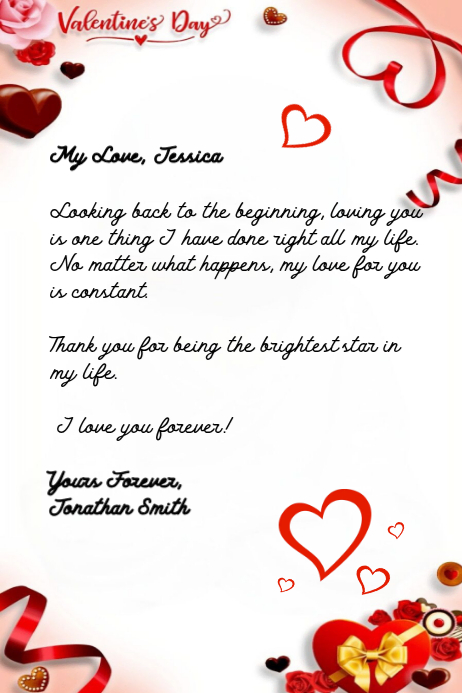 Valentine's Day
My Love, Jessica
Looking back to the beginning, loving you
is one thing I have done right all my life.
No matter what happens, my love for you
is constant.
Thank you for being the brightest star in
my life.
I love you forever!
Yours Forever,
Jonathan Smith